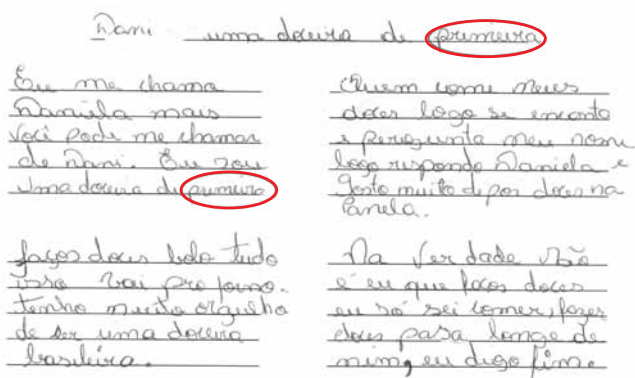 Dani uma doceira de primeira
Eu me chamo
Daniela mais
você pode me chamar
de Dani. Eu sou
uma doceira de primeira
faços doces bolo tudo
isso vai pro forno.
tenho muito orgulho
de ser uma doceira
brasileira.
Quem come meus
doces logo se encanta
e pergunta meu nome
logo respondo Daniela e
gosto muito de por doces na
Panela.
Na Verdade não
é eu que faços doces
eu só sei comer, fazer
doces pasa longe de
mim, eu digo fim.